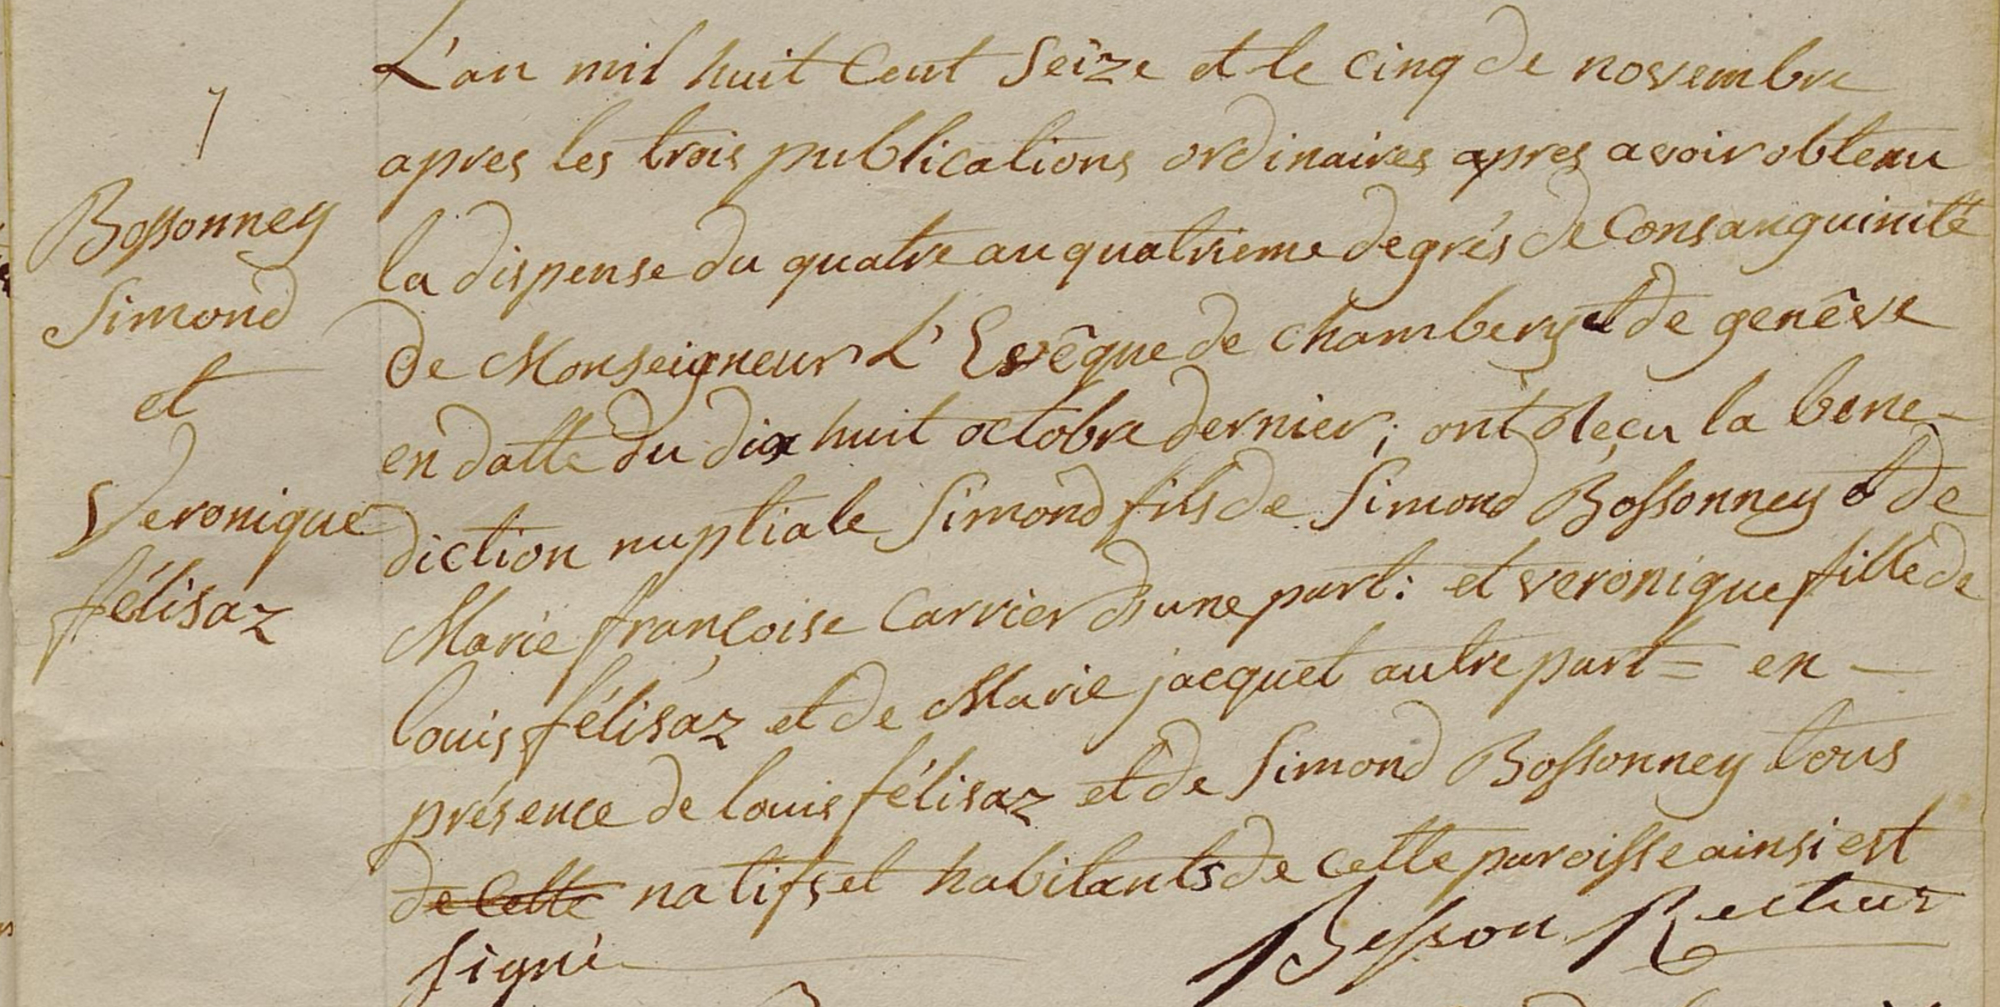 7
Bossonney
Simond
et
Veronique
félisaz
L'an mil huit Cent Seize et le cinq de novembre
apres les trois publications ordinaires apres avoir obtenu
la dispense du quatre au quatrieme degrés de Consanguinité
de Monseigneur L'Evêque de chambery et de genêve
en datte du dix huit octobre dernier; ont Reçu la bene-
diction nuptiale Simond fils de Simond Bossonney & de
Marie françoise Carrier d'une part: et veronique fille de
louis félisaz et de Marie jacquet autre part = en -
présence de louis félisaz et de Simond Bossonney tous
de Cette natifs et habitants de cette paroisse ainsi est
signé Besson Recteur